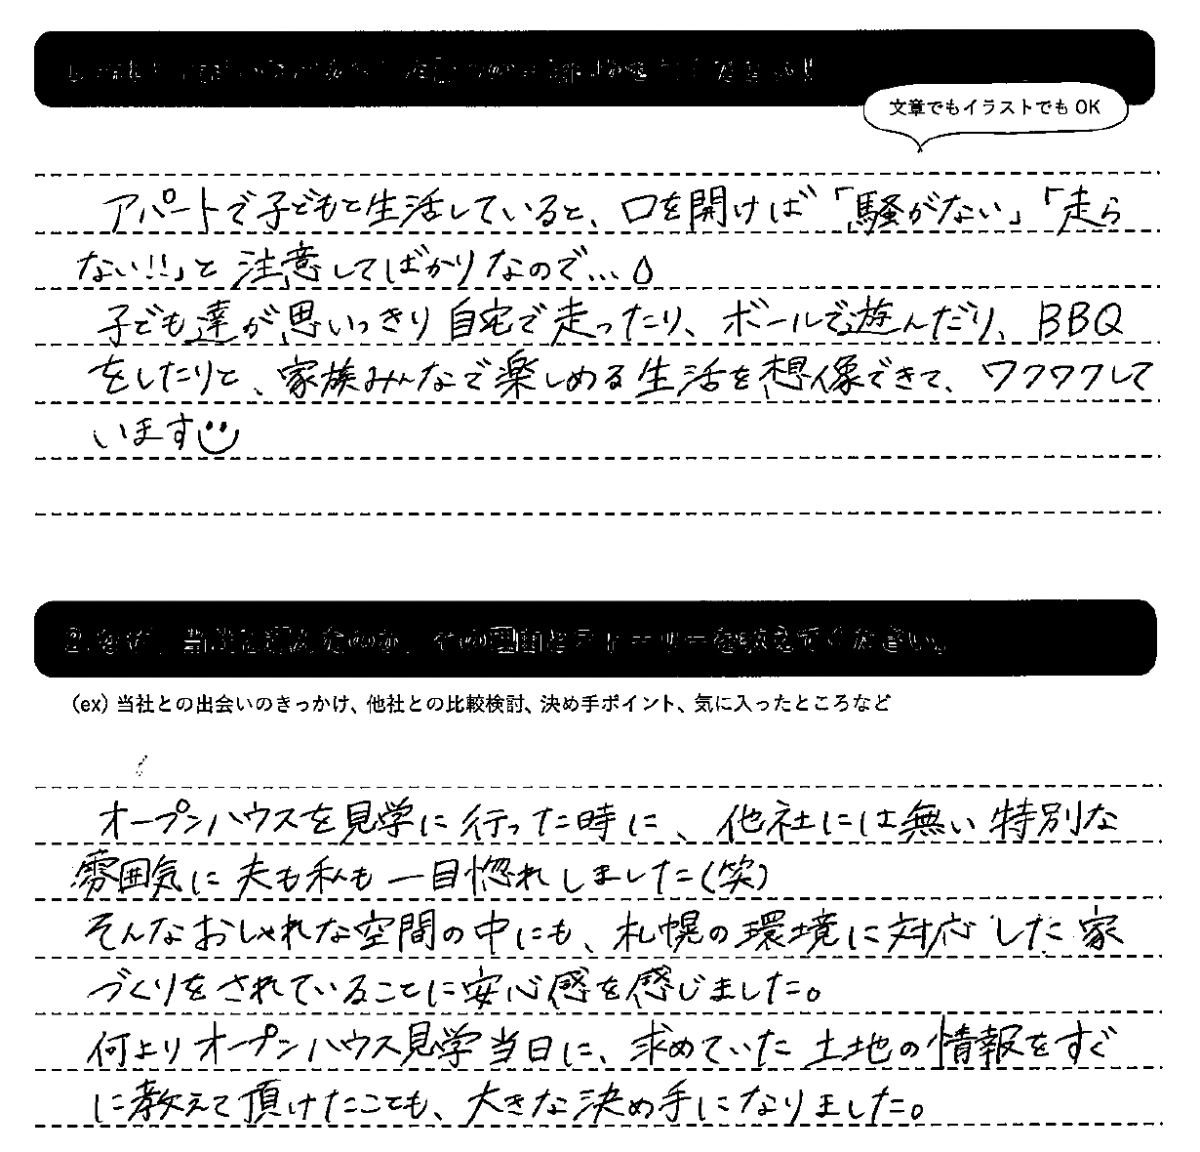 文章でもイラストでもOK
アパートで子どもと生活していると、口を開けば「騒がない」「走ら
ない!!」と注意してばかりなので…
子ども達が思いっきり自宅で走ったり、ボールで遊んだり、BBQ
をしたりと、家族みんなで楽しめる生活を想像できて、ワクワクして
います
2.なぜ、当社を選んだのか、その理由とストーリーを教えてください。
(ex)当社との出会いのきっかけ、他社との比較検討、決め手ポイント、気に入ったところなど
オープンハウスを見学に行った時に、他社には無い特別な
雰囲気に夫も私も一目惚れしました(笑)
そんなおしゃれな空間の中にも、札幌の環境に対応した家
づくりをされていることに安心感を感じました。
何よりオープンハウス見学当日に、求めていた土地の情報をすぐ
に教えて頂けたことも、大きな決め手になりました。